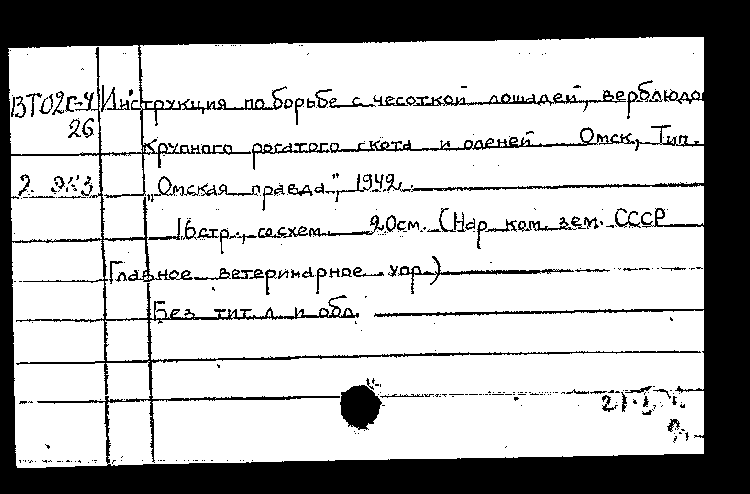 ВТ02г-4 Инструкция по борьбе с чесоткой лошадей, верблюдо
26
крупного рогатого скота и оленей. Омск, Тип.
2 экз „Омская правда", 1942.
16 стр., со схем. 20см. (Нар. ком. зем. СССР
Главное ветеринарное упр.)
Без тит. л и обл.